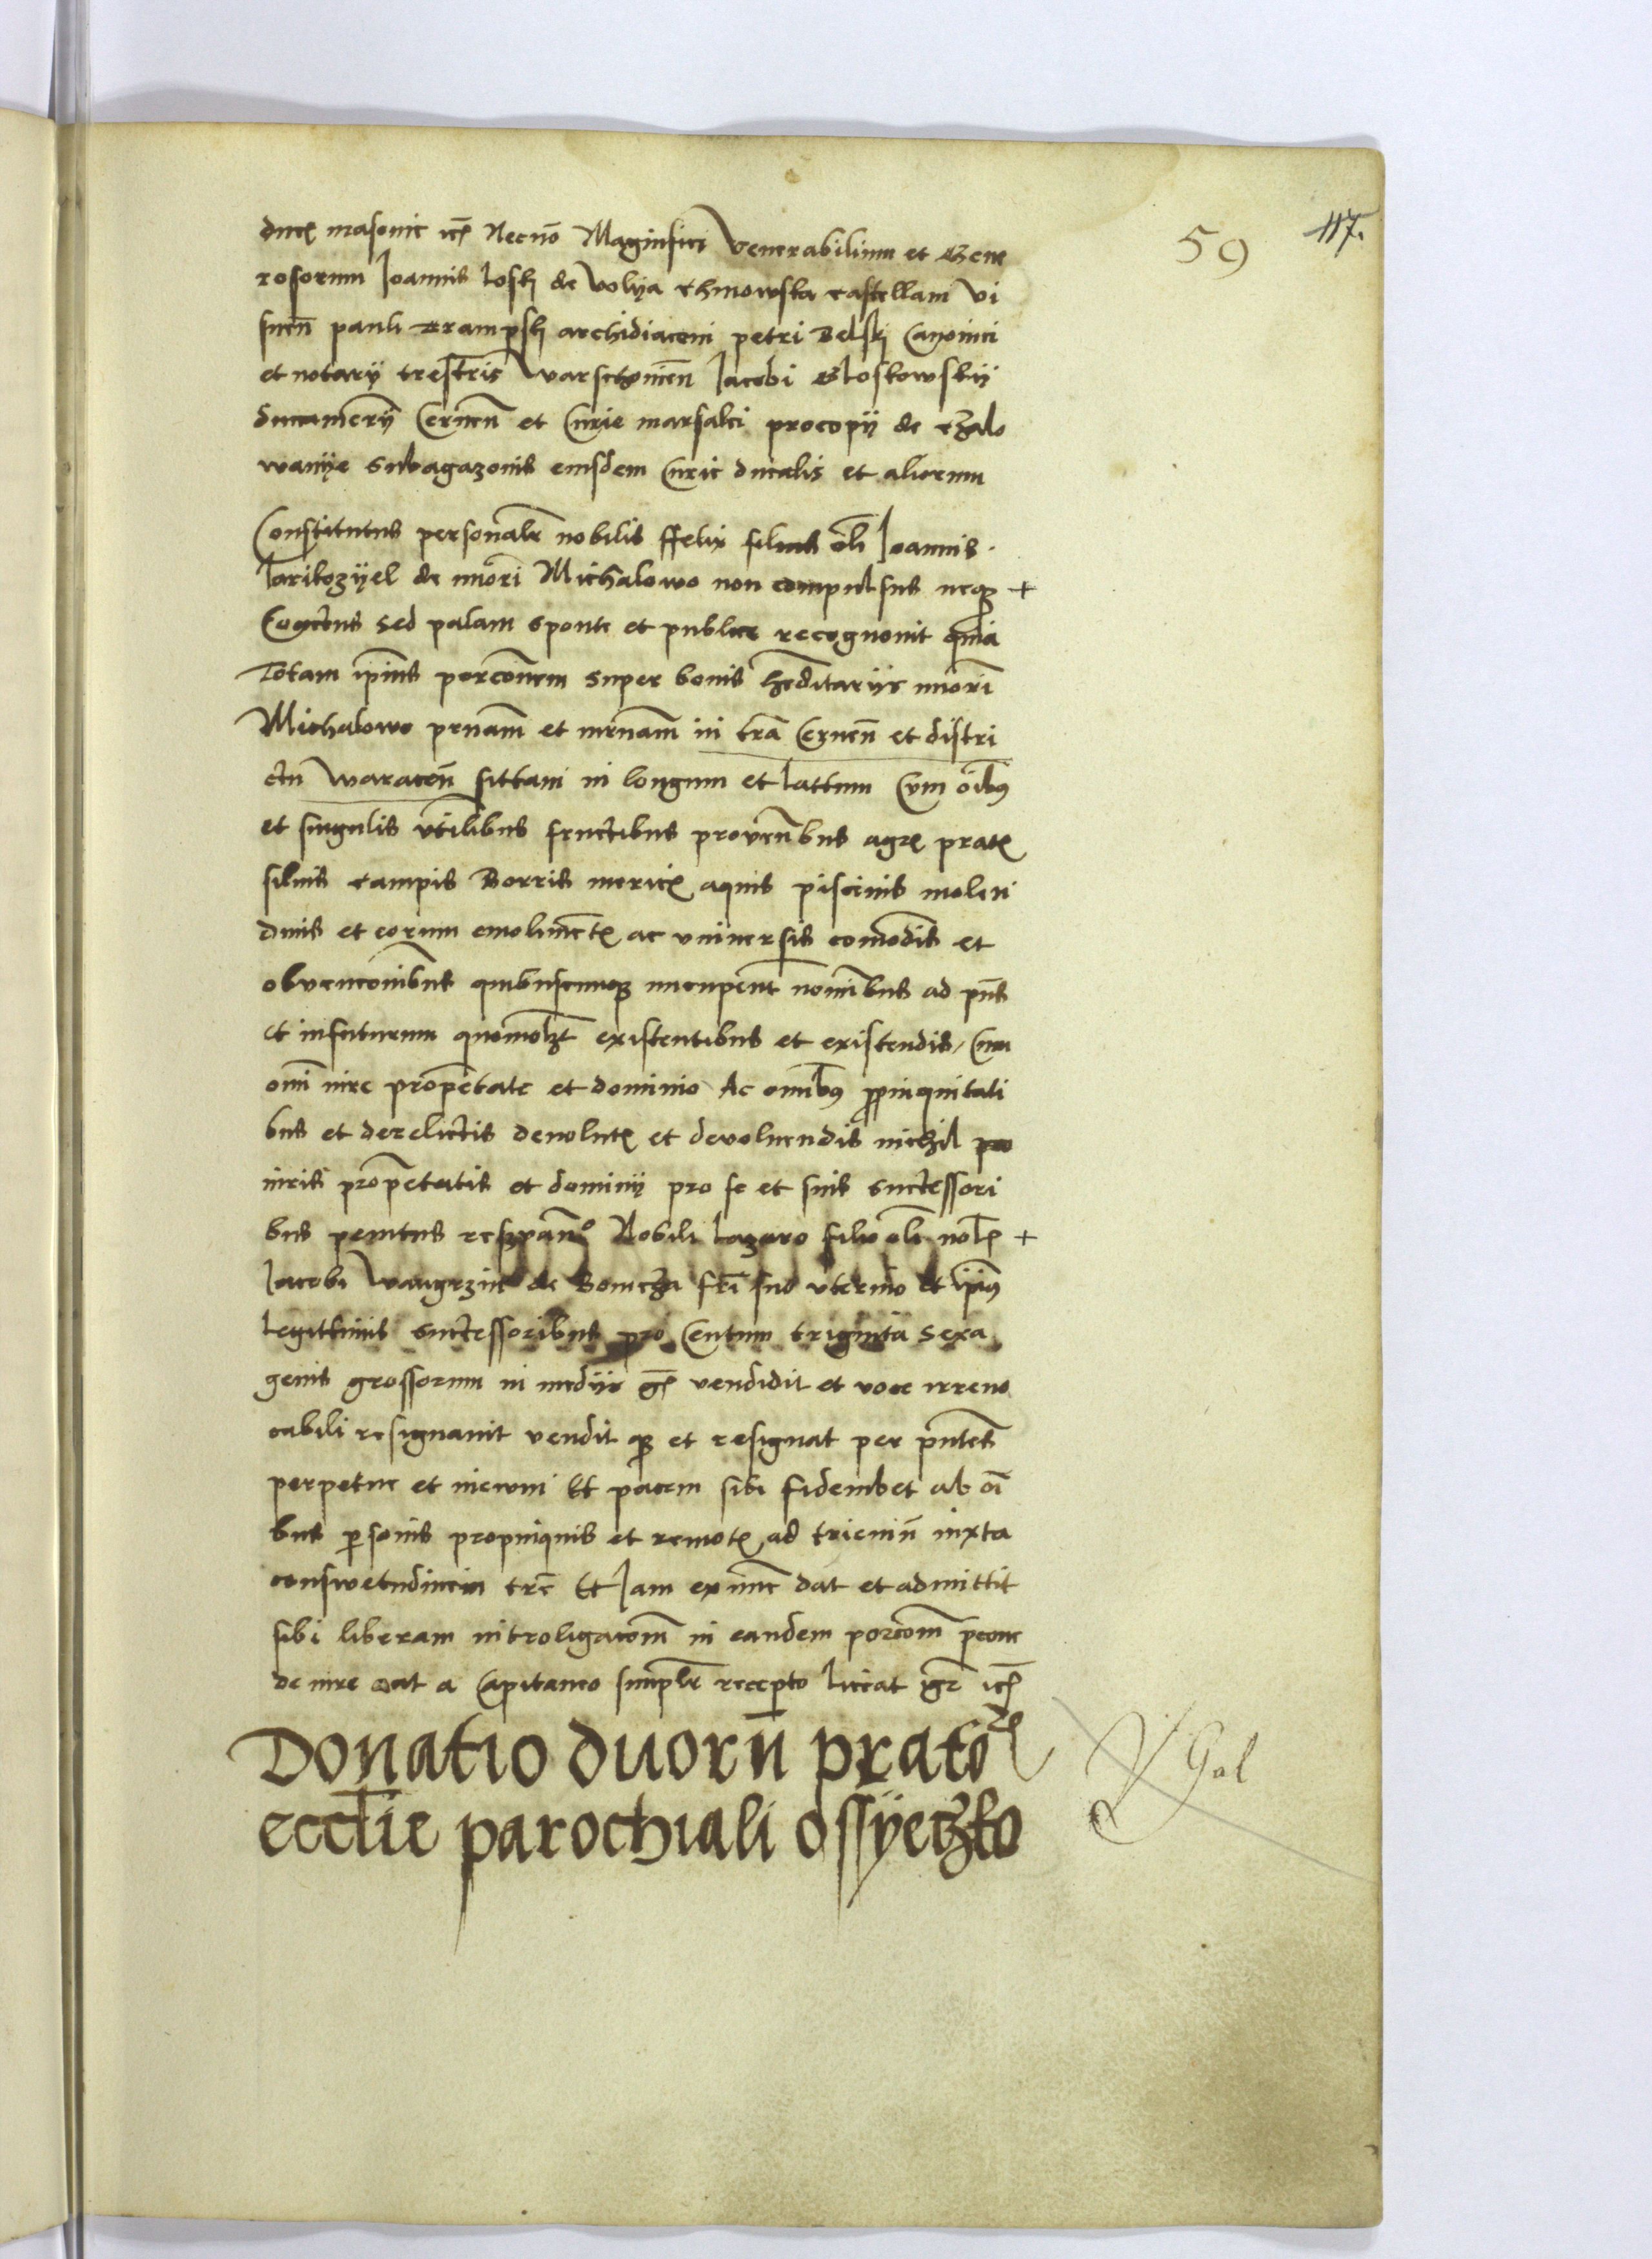 59 117.
ducis masovie etc Necno Magnifici Venerabilium et Gene
rosorum Joannis Joski de Volya chinowska castellani Vi
snen pauli krampski archidiaconi petri Belski Canonici
et notarii trestris Varschovien Jacobi Gloskowskii
succamerii Cernen et Curie marsalci procopii de
wanije subagazonis eiusdem Curie ducalis et aliorum
Constitutus personalr nobilis ffelix filius oli Joannis
de minori Michalowo non compulsus neque +
Coactus sed palam sponte et publice recognovit quia
Totam ipius porcionem super bonis hereditariis minori
Michalowo prnam et mrnam in tra Cernen et distri
ctu waracen sittam in longum et lattum Cum oibus
et singulis utilibus fructibus provenbus agris pratis
silvis campis Borris mericis aquis piscinis molen
dinis et eorum emolimetis ac universis comodis et
obvencionibus quibuscunque nucupent nominibus ad pns
et infuturum quomolzt existentibus et existendis, Cum
omi iure proprietate et dominio Ac omibus propinquitati
bus et derelictis devolutis et devoluendis nichil pro
iuris proprietatis et dominii pro se et suis successori
bus penitus reservando Nobili Lazaro filio oli nobilis +
Jacobi de Boncza fri suo uterino et ipius
legittimis successoribus pro Centum triginta sexa
genis grossorum in mediis gr vendidit et voce irrevo
cabili resignavit vendit que et resignat per pntes
perpetue et in evum Et pacem sibi fideiubet ab oi
bus personis propinquis et remotis ad trieniu iuxta
conswetudinem tre Et Jam ex nunc dat et admittit
sibi liberam introligacom in eandem porcom
de iure dat a Capitaneo simplr recepto liceat igr etc
Donatio duoru prator
ecclie parochiali ossyeczko
Gol